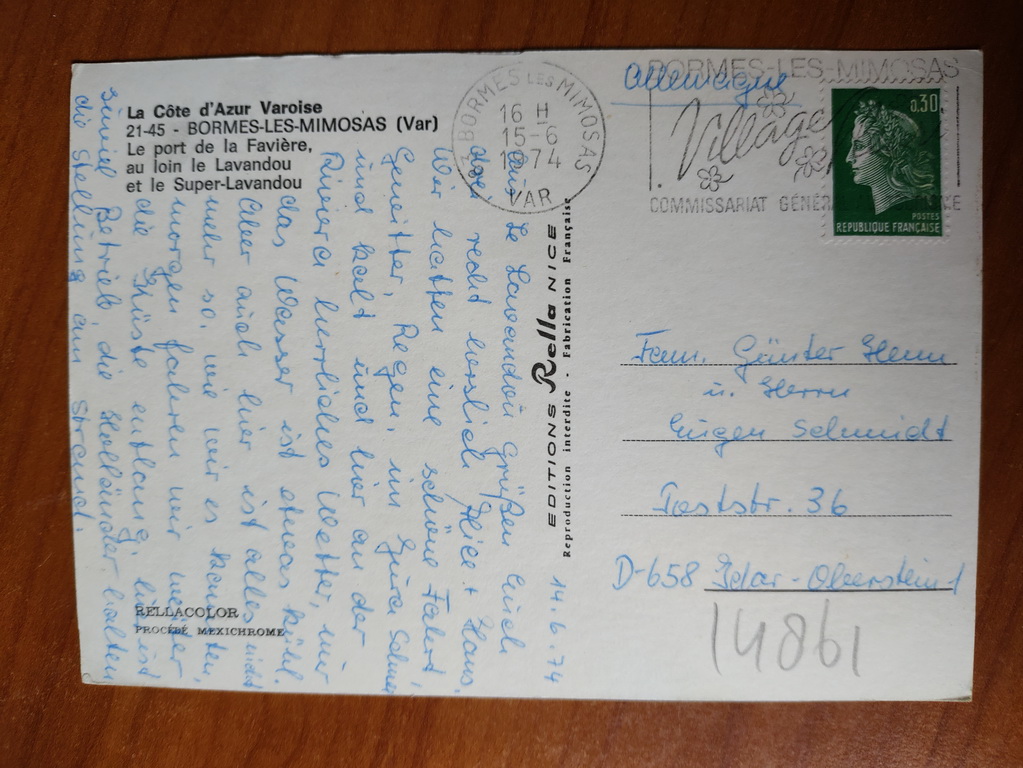 La Côte d'Azur Varoise
21-45 - BORMES-LES-MIMOSAS (Var)
Le port de la Favière,
au loin le Lavandou
et le Super-Lavandou
14.6.74
Aus Le Lavandou grüßen Euch
recht herzlich + Hans.
Wir hatten eine schöne Fahrt,
Gewitter, Regen, im Jura Schnee
und kalt und hier an der
Riviera herrliches Wetter, nur
das Wasser ist etwas kühl.
Aber auch hier ist alles nicht
mehr so, wie wir es kannten,
morgen fahren wir weiter
die Küste entlang, hier ist
zuviel Betrieb, die Holländer halten
die Stellung am Strand.
RELLACOLOR
PROCÉDÉ MEXICHROME
EDITIONS Rella NICE
Reproduction interdite - Fabrication Française
83 BORMES LES MIMOSAS
16 H
15-6
1974
VAR
Allemagne
BORMES-LES-MIMOSAS
Village
COMMISSARIAT
0,30
POSTES
REPUBLIQUE FRANÇAISE
Fam. Günter Henn
u. Herrn
Eugen Schmidt
36
D-658 Idar-Oberstein-1
14861